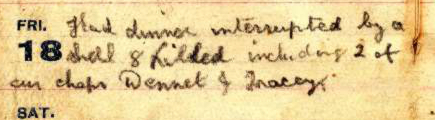 FRI. Had dinner interrupted by a
18 shell 8 killed including 2 of
our chaps Dennet & Tracey.
SAT.